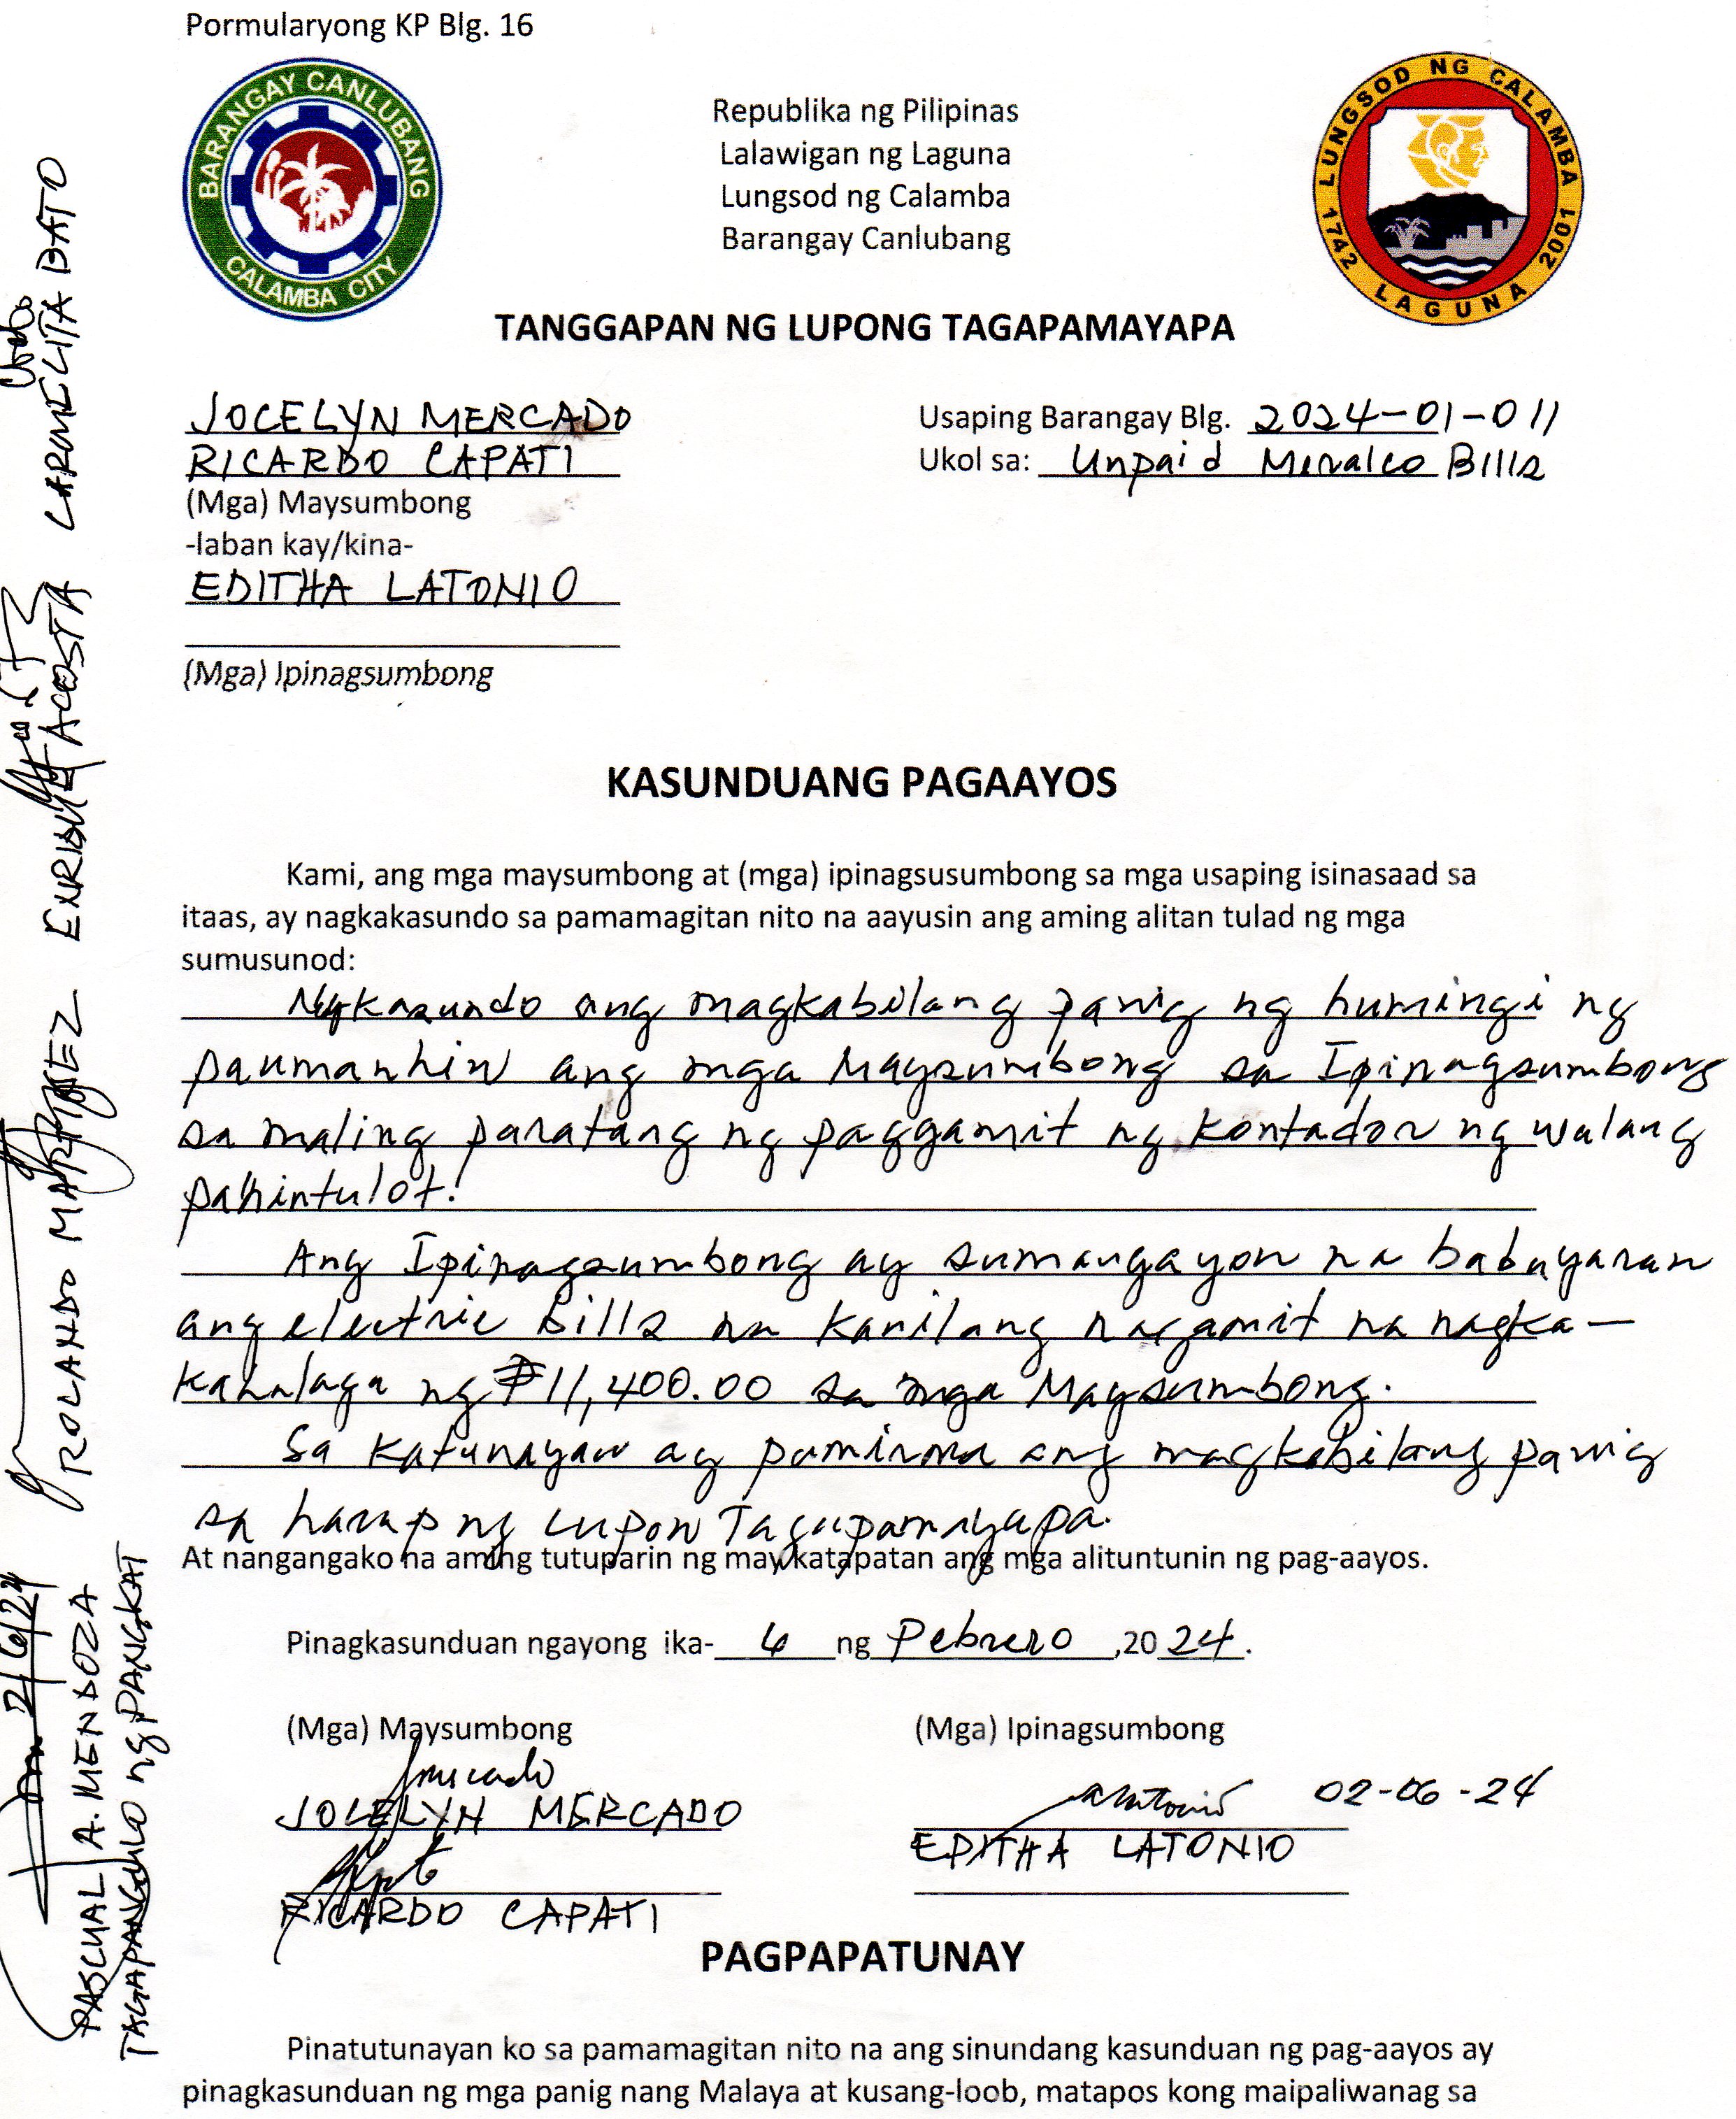 Pormularyong KP Blg. 16
BARANGAY CANLUBANG
CALAMBA CITY
Republika ng Pilipinas
Lalawigan ng Laguna
Lungsod ng Calamba
Barangay Canlubang
LUNGSOD NG CALAMBA
1742 LAGUNA 2001
TANGGAPAN NG LUPONG TAGAPAMAYAPA
JOCELYN MERCADO
RICARDO CAPATI
(Mga) Maysumbong
-laban kay/kina-
EDITHA LATONIO
(Mga) Ipinagsumbong
Usaping Barangay Blg. 2024-01-011
Ukol sa: Unpaid Meralco Bills
KASUNDUANG PAGAAYOS
Kami, ang mga maysumbong at (mga) ipinagsusumbong sa mga usaping isinasaad sa
itaas, ay nagkakasundo sa pamamagitan nito na aayusin ang aming alitan tulad ng mga
sumusunod:
Nagkasundo ang magkabilang panig ng humingi ng
paumanhin ang mga Maysumbong sa Ipinagsumbong
sa maling paratang ng paggamit ng kontador ng walang
pahintulot.
Ang Ipinagsumbong ay sumangayon na babayaran
ang electric bills na kanilang nagamit na nagka-
kahalaga ng ₱11,400.00 sa mga Maysumbong.
Sa katunayan ay pumirma ang magkabilang panig
sa harap ng Lupon Tagapamayapa.
At nangangako na aming tutuparin ng may katapatan ang mga alituntunin ng pag-aayos.
Pinagkasunduan ngayong ika- 6 ng Pebrero ,20 24.
(Mga) Maysumbong
JOCELYN MERCADO
RICARDO CAPATI
(Mga) Ipinagsumbong
02-06-24
EDITHA LATONIO
PAGPAPATUNAY
Pinatutunayan ko sa pamamagitan nito na ang sinundang kasunduan ng pag-aayos ay
pinagkasunduan ng mga panig nang Malaya at kusang-loob, matapos kong maipaliwanag sa
2/6/24
PASCUAL A. MENDOZA
TAGAPANGULO ng PANGKAT
ROLANDO MARTINEZ
ENRIQUE ACOSTA
CARMELITA BATO